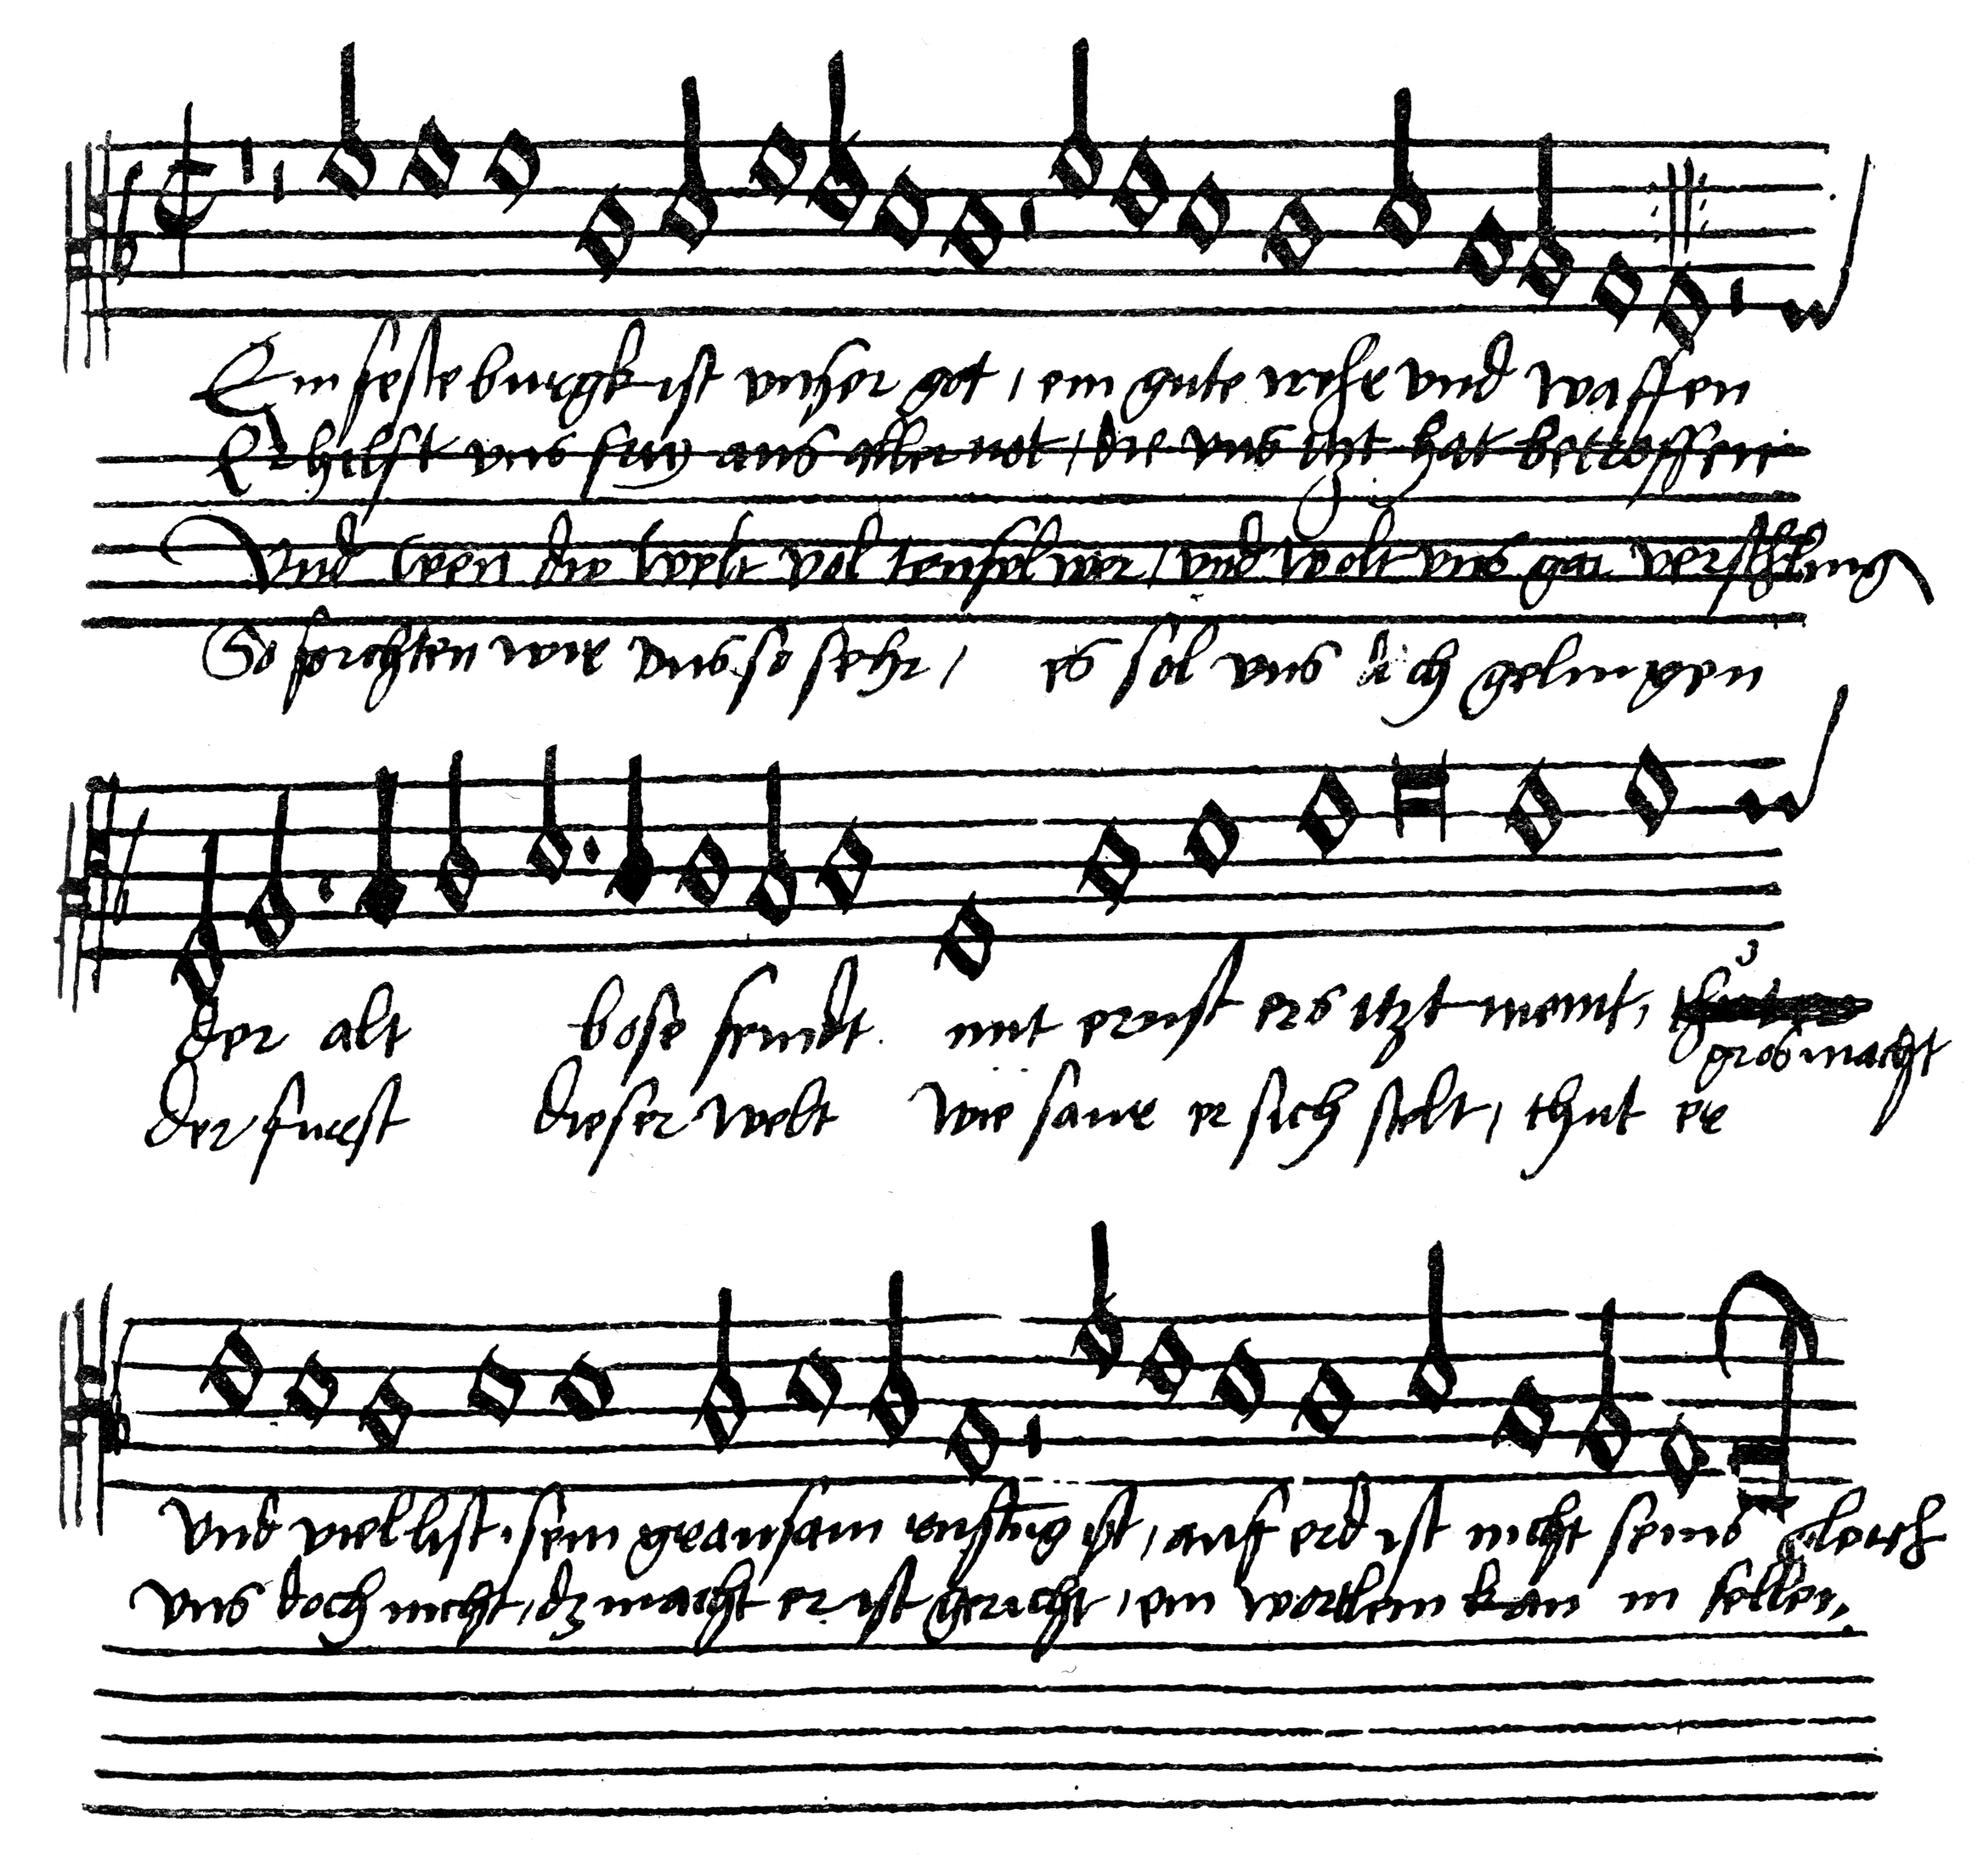 Ein feste burgk ist vnser got / ein gute wehr vnd waffen
Er hilft vns frey aus aller not / die vns itzt hat betroffen
Vnd wen die welt vol teufel wer / vnd wolt vns gar verschling
So forchten wir vns so sehr / es sol vns doch gelingen
der alt bose feindt mit ernst ers itzt meint /
gros macht
der furst dieser welt wie saur er sich stelt / thut er
vnd viel list sein grausam rustung ist / auf erd ist nicht seins gleich
vns doch nicht / dz macht er ist gericht / ein wortlein kan in fellen